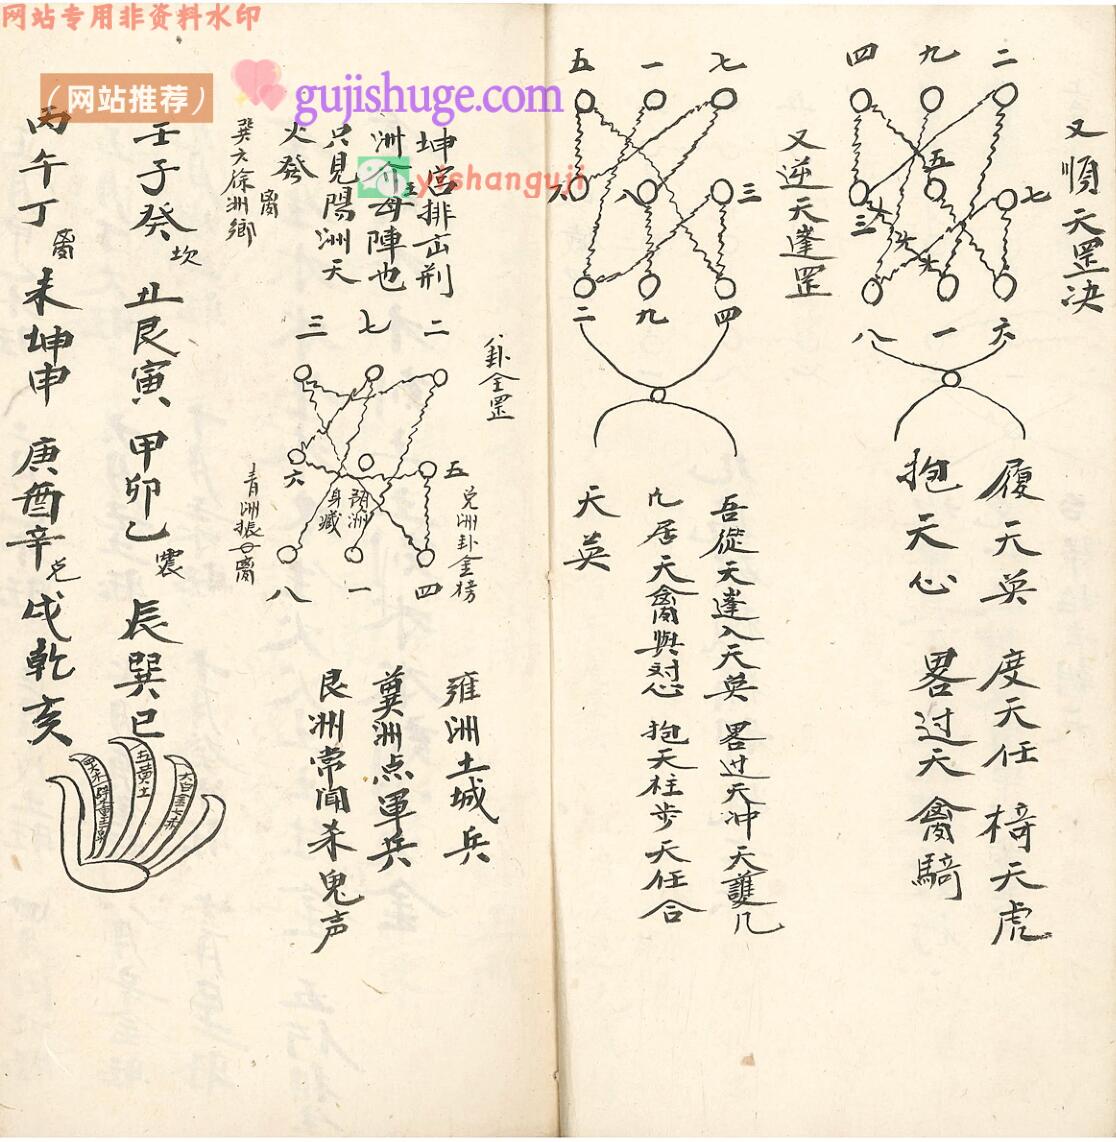 网站专用非资料水印
（网站推荐）
gujishuge.com
yishanguji
又順天罡决
四 九 二
三 五 七
八 一 六
履天英 度天任 椅天虎
抱天心 畧过天禽騎
又逆天蓬罡
五 一 七
六 八 三
二 九 四
吾從天蓬入天英 畧过天冲天護几
几居天禽與对心 抱天柱步天任合
天英
坤宫排立荆
洲 母陣也
只見陽洲天
火發
巽方徐洲鄉
离
卦全罡
三 七 二
六 五
八 一 四
兑洲卦金榜
身藏
青洲振 离
雍洲土城兵
冀洲点軍兵
艮洲常闻杀鬼声
壬子癸坎 丑艮寅 甲卯乙震 辰巽巳
丙午丁离 未坤申 庚酉辛兑 戌乾亥
五黄土
六白金七赤